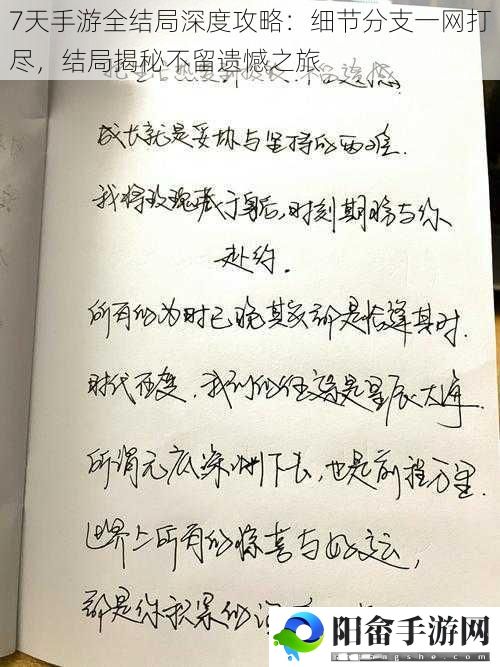 7天手游全结局深度攻略：细节分支一网打
尽，结局揭秘不留遗憾之旅
成长就是妥协与坚持的两难.
我将玫瑰藏于身后,时刻期盼与你
赴约.
所有的为时已晚其实都是恰逢其时.
时代百变,我们的征途是星辰大海.
所谓无底深渊下去,也是前程万里.
世界上所有的惊喜与好运,
都是你积累的
阳畲手游网